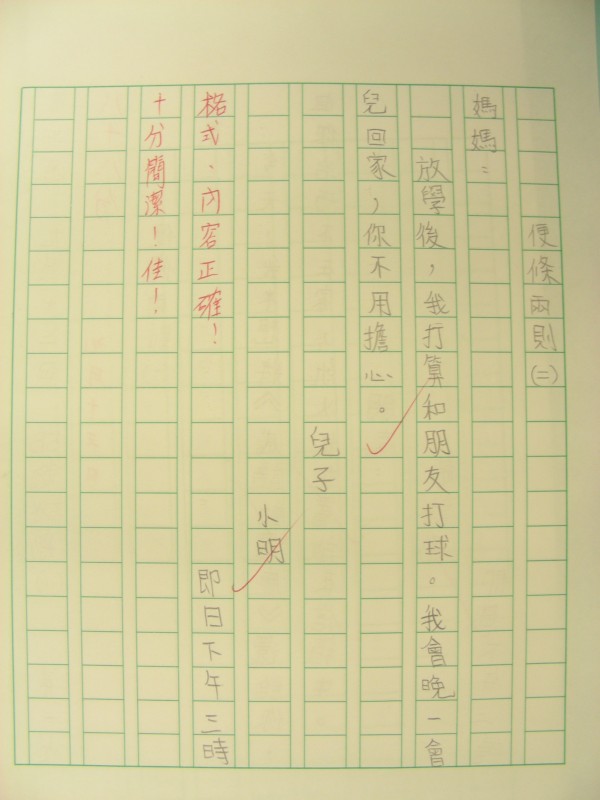 便條兩則㈡
媽媽：
放學後，我打算和朋友打球。我會晚一會
兒回家，你不用擔心。
兒子
小明
即日下午三時
格式、內容正確！
十分簡潔！佳！